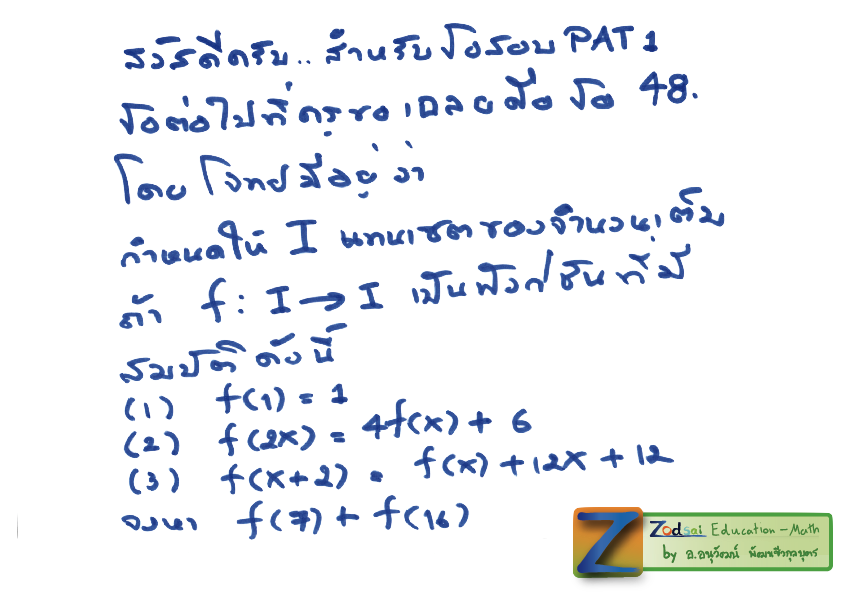 สวัสดีครับ.. สำหรับข้อสอบ PAT 1
ข้อต่อไปที่ครูขอเฉลยคือ ข้อ 48.
โดยโจทย์มีอยู่ว่า
กำหนดให้ I แทนเซตของจำนวนเต็ม
ถ้า f : I → I เป็นฟังก์ชันที่มี
สมบัติ ดังนี้
(1) f(1) = 1
(2) f(2x) = 4f(x) + 6
(3) f(x+2) = f(x) + 12x + 12
จงหา f(7) + f(16)
Zodsai Education - Math
by อ.อนุวัฒน์